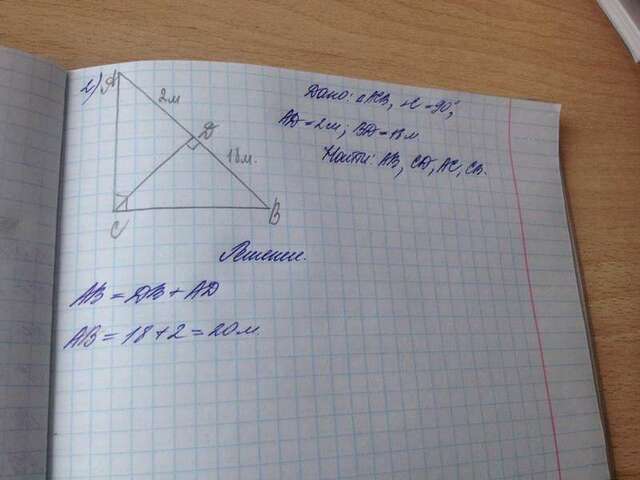 2)
A
2м
D
18м.
C
B
Дано: △ACB, ∠C=90°,
AD=2м; BD=18м
Найти: AB, CD, AC, CB.
Решение.
AB = DB + AD
AB = 18 + 2 = 20м